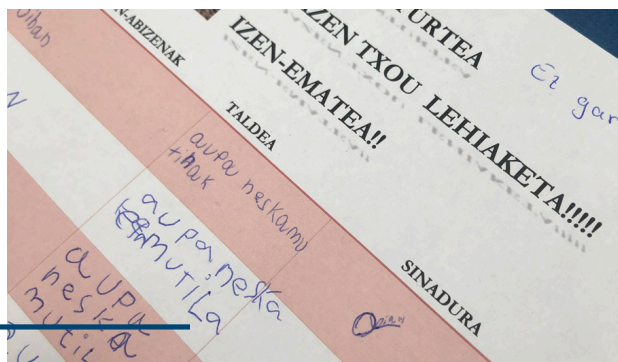 URTEA
IZEN TXOU LEHIAKETA!!!!!
IZEN-EMATEA!!
Ez gar
N-ABIZENAK
TALDEA
SINADURA
aupa neskamu
tinak
Oihan
aupa neska
mutila
aupa
neska
mutil